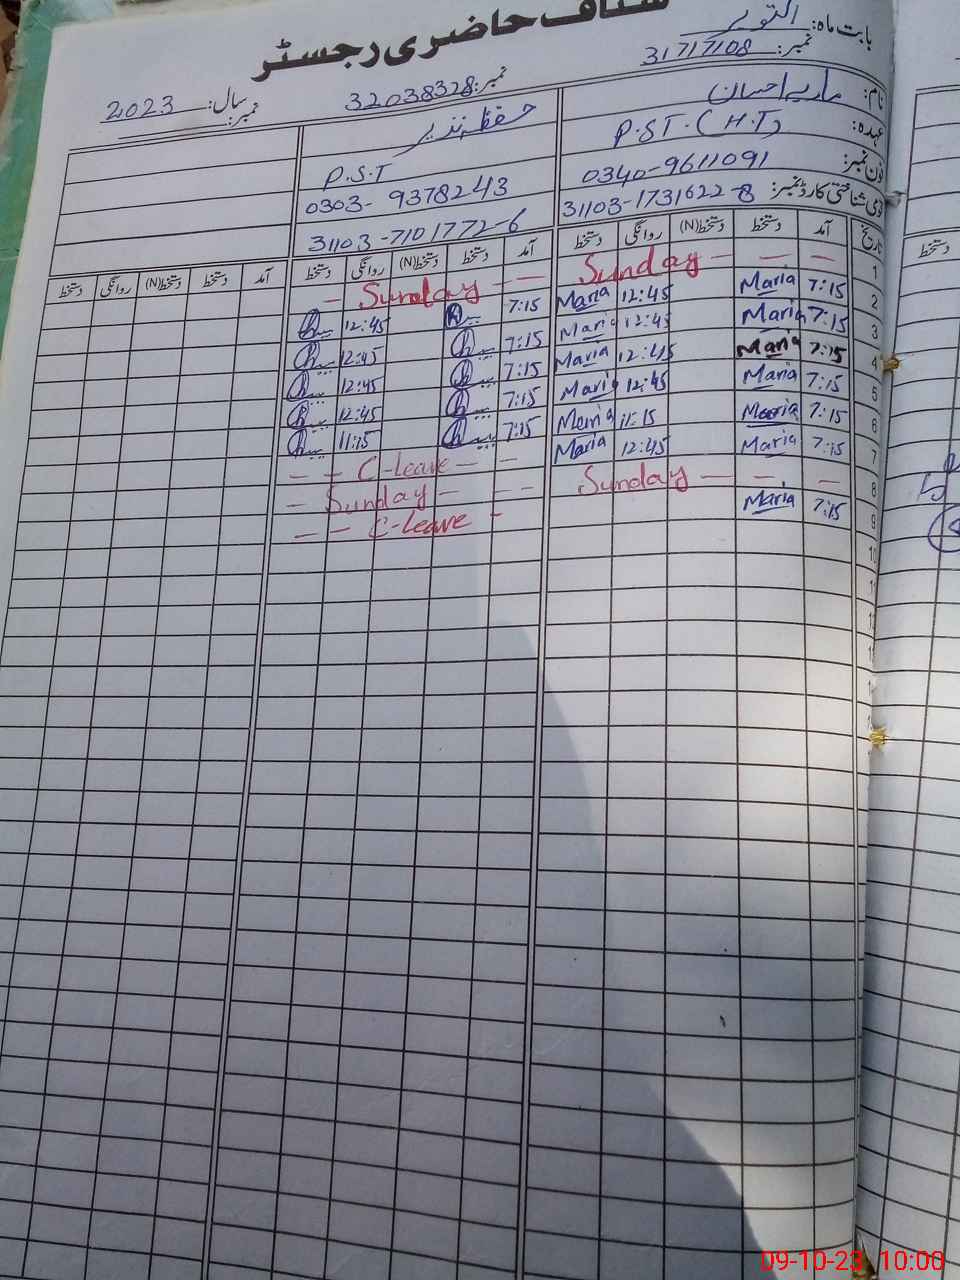 سٹاف حاضری رجسٹر
بابت ماہ: اکتوبر
نمبر: 31717108
نمبر: 32038328
سال: 2023
نمبر:
نام: ماریہ احسان
عہدہ: P.S.T. (H.T)
P.S.T
فون نمبر: 0340-9611091
0303-9378243
قومی شناختی کارڈ نمبر: 31103-1731622-8
31103-7101772-6
تاریخ آمد دستخط دستخط(N) روانگی دستخط آمد دستخط دستخط(N) روانگی دستخط آمد دستخط دستخط(N) روانگی دستخط
1 — — Sunday — — Sunday —
2 7:15 Maria 12:45 Maria 7:15 12:45
3 7:15 Maria 12:45 Maria 7:15 12:45
4 7:15 Maria 12:45 Maria 7:15 12:45
5 7:15 Maria 12:45 Maria 7:15 12:45
6 7:15 Maria 11:15 Maria 7:15 11:15
7 7:15 Maria 12:45 Maria — C-leave — —
8 — — — Sunday — — Sunday —
9 7:15 Maria - C-leave — —
10
11
09-10-23 10:00